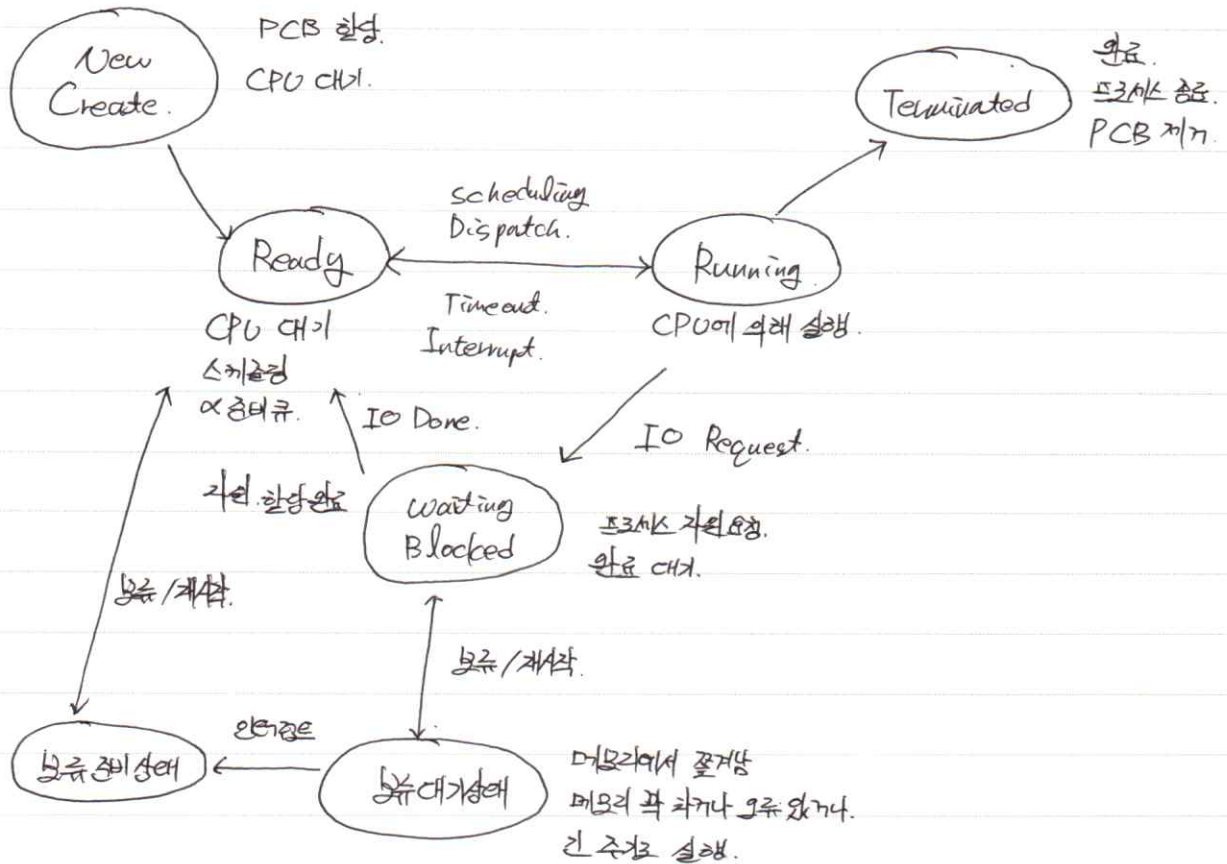 New
Create.
PCB 할당.
CPU 대기.
Terminated
완료.
프로세스 종료.
PCB 제거.
Scheduling
Dispatch.
Ready
Running.
Timeout.
Interrupt.
CPU 대기
스케줄링
CPU에 의해 실행.
IO Done.
IO Request.
자원 할당완료
waiting
Blocked
프로세스 자원요청.
완료 대기.
보류/재시작.
보류/재시작.
인터럽트
보류준비상태
보류대기상태
메모리에서 쫓겨남
메모리 꽉 차거나 오류 있거나.
긴 주기로 실행.